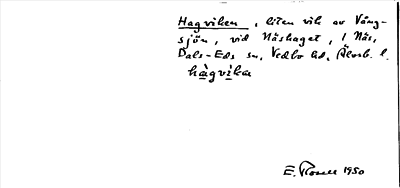 Hagviken, liten vik av Vång-
sjön, vid Näshaget, i Näs,
Dals-Eds sn, Vedbo hd, Älvsb. l.
hàgvìka
E. Rosell 1950